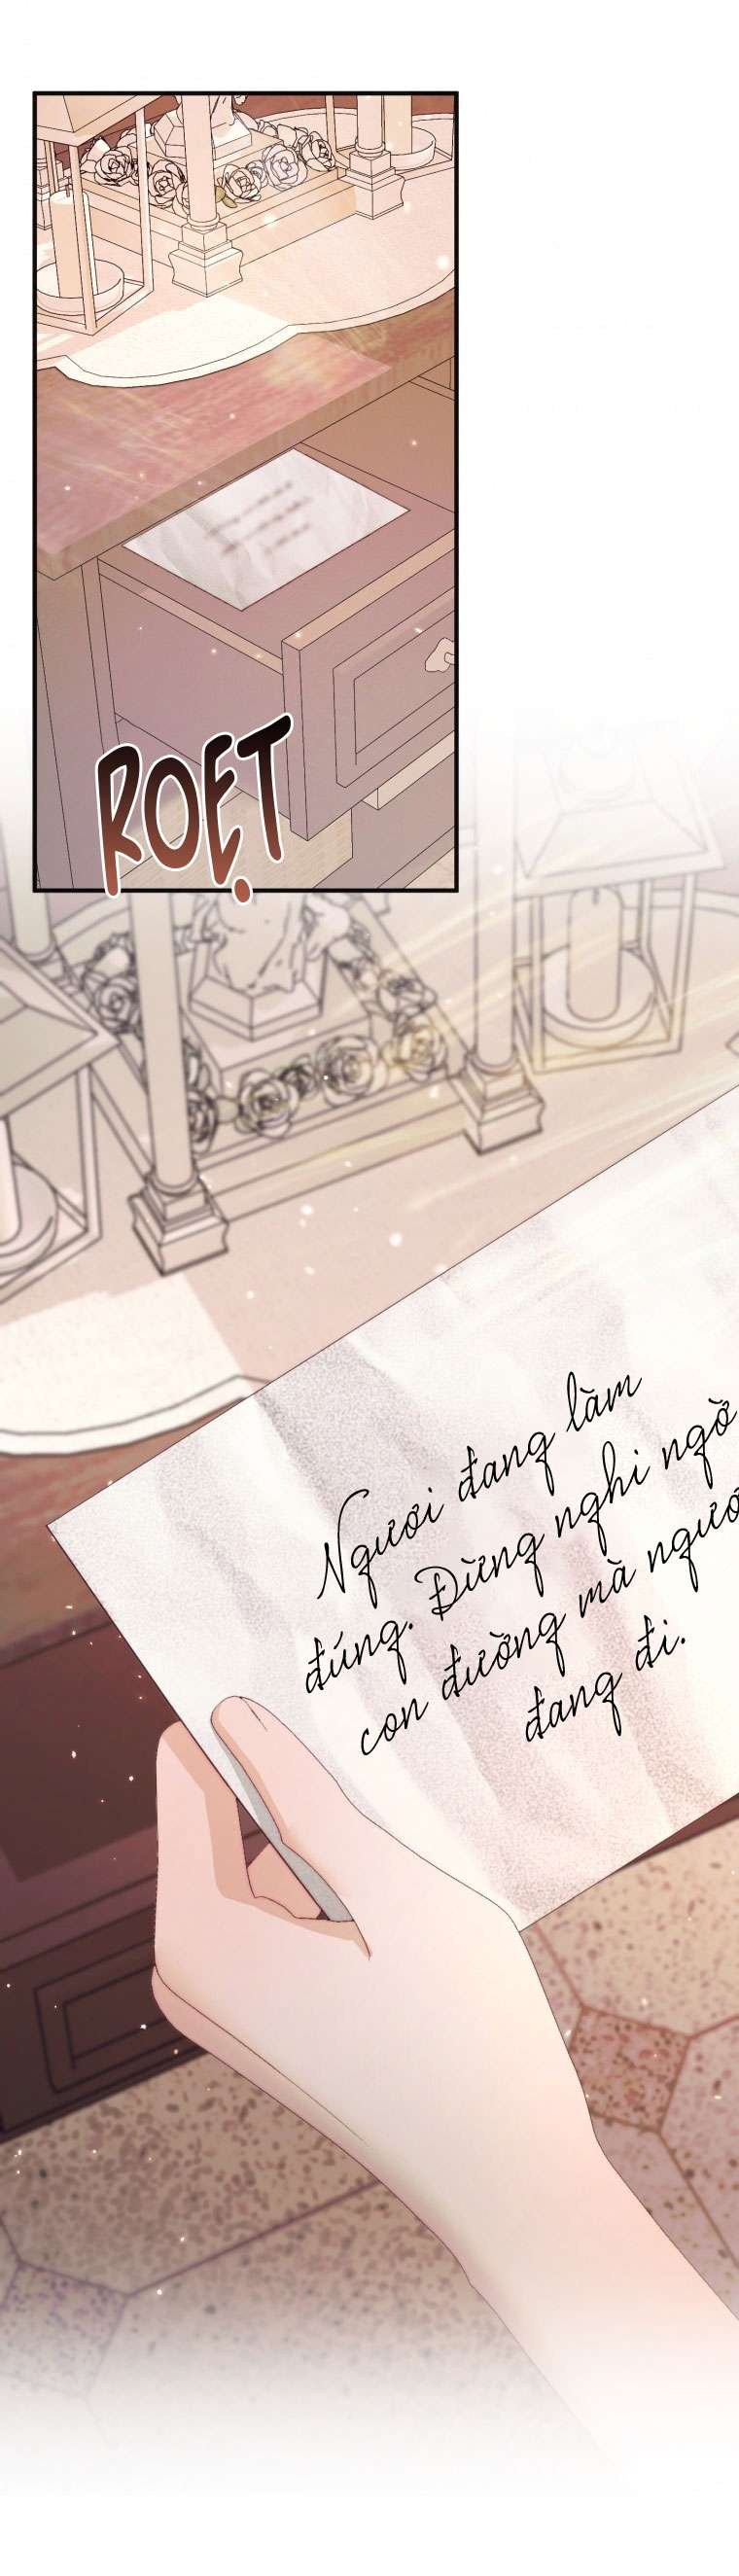 ROẸT
Ngươi đang làm
đúng. Đừng nghi ngờ
con đường mà ngươi
đang đi.